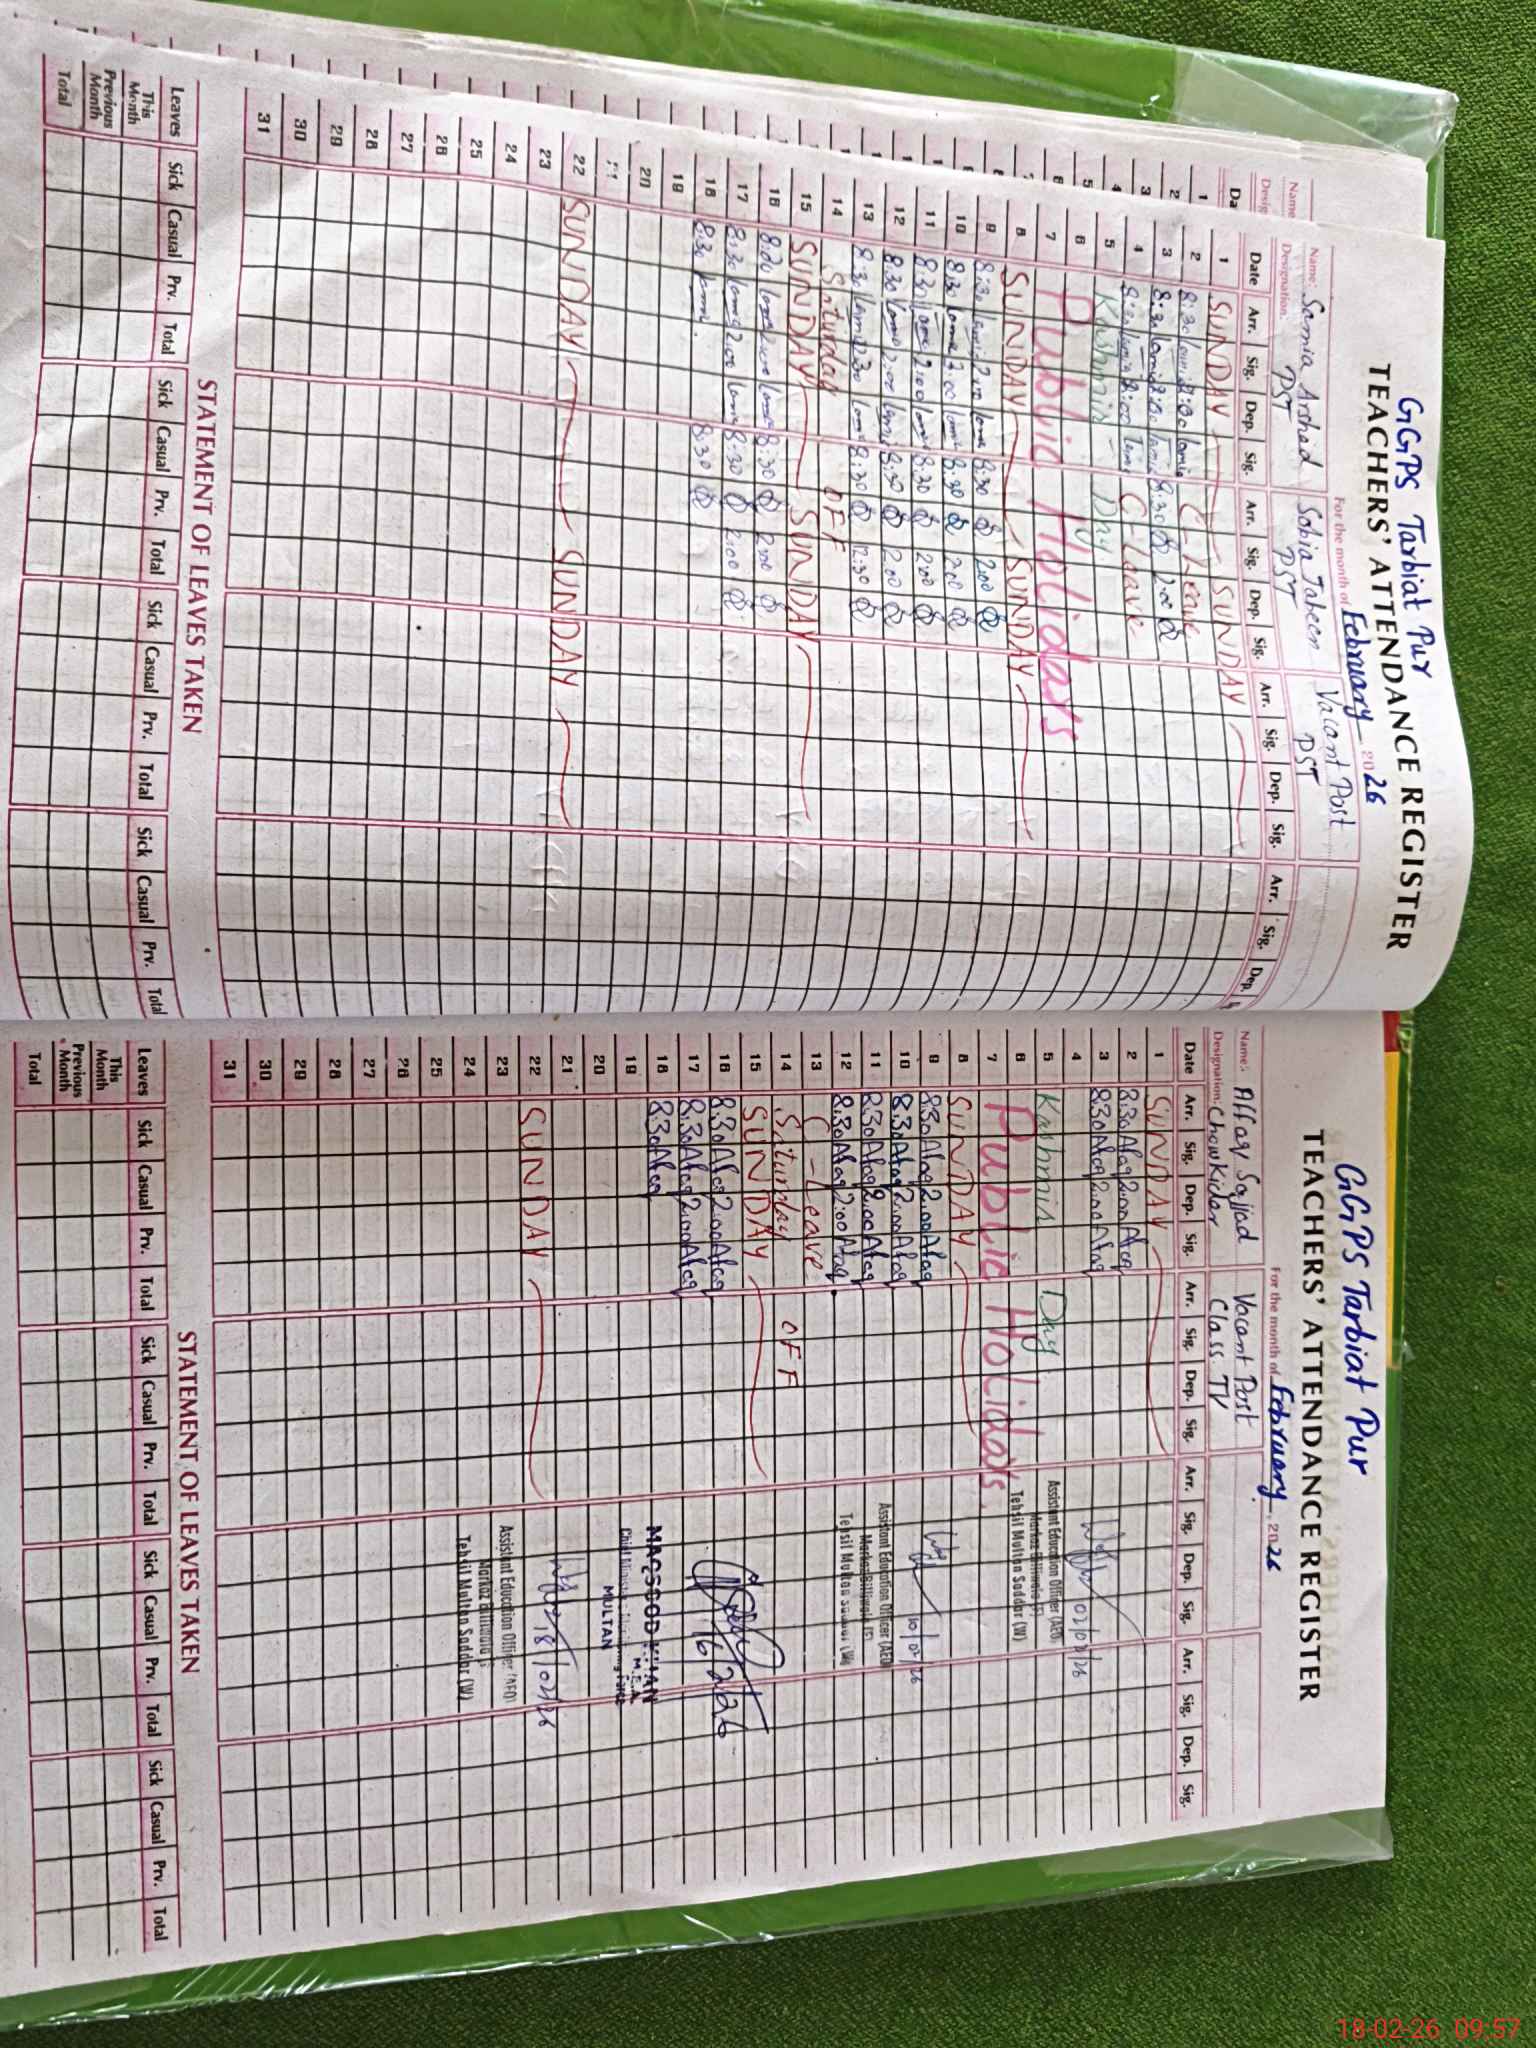 GGPS Tarbiat Pur
TEACHERS' ATTENDANCE REGISTER
For the month of February 2026
Name: Samia Arshad Sobia Jabeen Vacant Post
Designation: PST PST PST
Date Arr. Sig. Dep. Sig. Arr. Sig. Dep. Sig. Arr. Sig. Dep. Sig. Arr. Sig. Dep.
1 SUNDAY SUNDAY
2 8:30 2:00 C-Leave
3 8:30 2:00 8:30 2:00
4 2:00 C-Leave
5 Kashmir Day
6
7 Public Holidays
8 SUNDAY SUNDAY
9 8:30 2:00 8:30 2:00
10 8:30 2:00 8:30 2:00
11 8:30 2:00 8:30 2:00
12 8:30 2:00 8:30 2:00
13 8:30 12:30 8:30 12:30
14 Saturday OFF
15 SUNDAY SUNDAY
16 2:00 8:30 2:00
17 8:30 2:00 8:30 2:00
18 8:30 8:30
19
20
21
22 SUNDAY SUNDAY
23
24
25
26
27
28
29
30
31
STATEMENT OF LEAVES TAKEN
Leaves Sick Casual Prv. Total Sick Casual Prv. Total Sick Casual Prv. Total Sick Casual Prv. Total
This Month
Previous Month
Total
GGPS Tarbiat Pur
TEACHERS' ATTENDANCE REGISTER
For the month of February, 2026
Name: Affaq Sajjad Vacant Post
Designation: Chowkidar Class IV
Date Arr. Sig. Dep. Sig. Arr. Sig. Dep. Sig. Arr. Sig. Dep. Sig. Arr. Sig. Dep. Sig.
1 SUNDAY
2 8:30 Afaq 2:00 Afaq
3 8:30 Afaq 2:00 Afaq 02/02/26
4 Assistant Education Officer (AEO)
5 Kashmir Day
6 Tehsil Multan Saddar (W)
7 Public Holidays
8 SUNDAY
9 8:30 Afaq 2:00 Afaq 10/02/26
10 8:30 Afaq 2:00 Afaq Assistant Education Officer (AEO)
11 8:30 Afaq 2:00 Afaq
12 8:30 Afaq 2:00 Afaq Tehsil Multan Saddar (W)
13 C-Leave
14 Saturday OFF
15 SUNDAY
16 8:30 Afaq 2:00 Afaq 16/2/26
17 8:30 Afaq 2:00 Afaq
18 8:30 Afaq MAQSOOD KHAN
M.E.A
19 Chief Minister Monitoring Force
MULTAN
20
21 18/02/26
22 SUNDAY
23 Assistant Education Officer (AEO)
24 Tehsil Multan Saddar (W)
25
26
27
28
29
30
31
STATEMENT OF LEAVES TAKEN
Leaves Sick Casual Prv. Total Sick Casual Prv. Total Sick Casual Prv. Total Sick Casual Prv. Total
This Month
Previous Month
Total
18-02-26 09:57